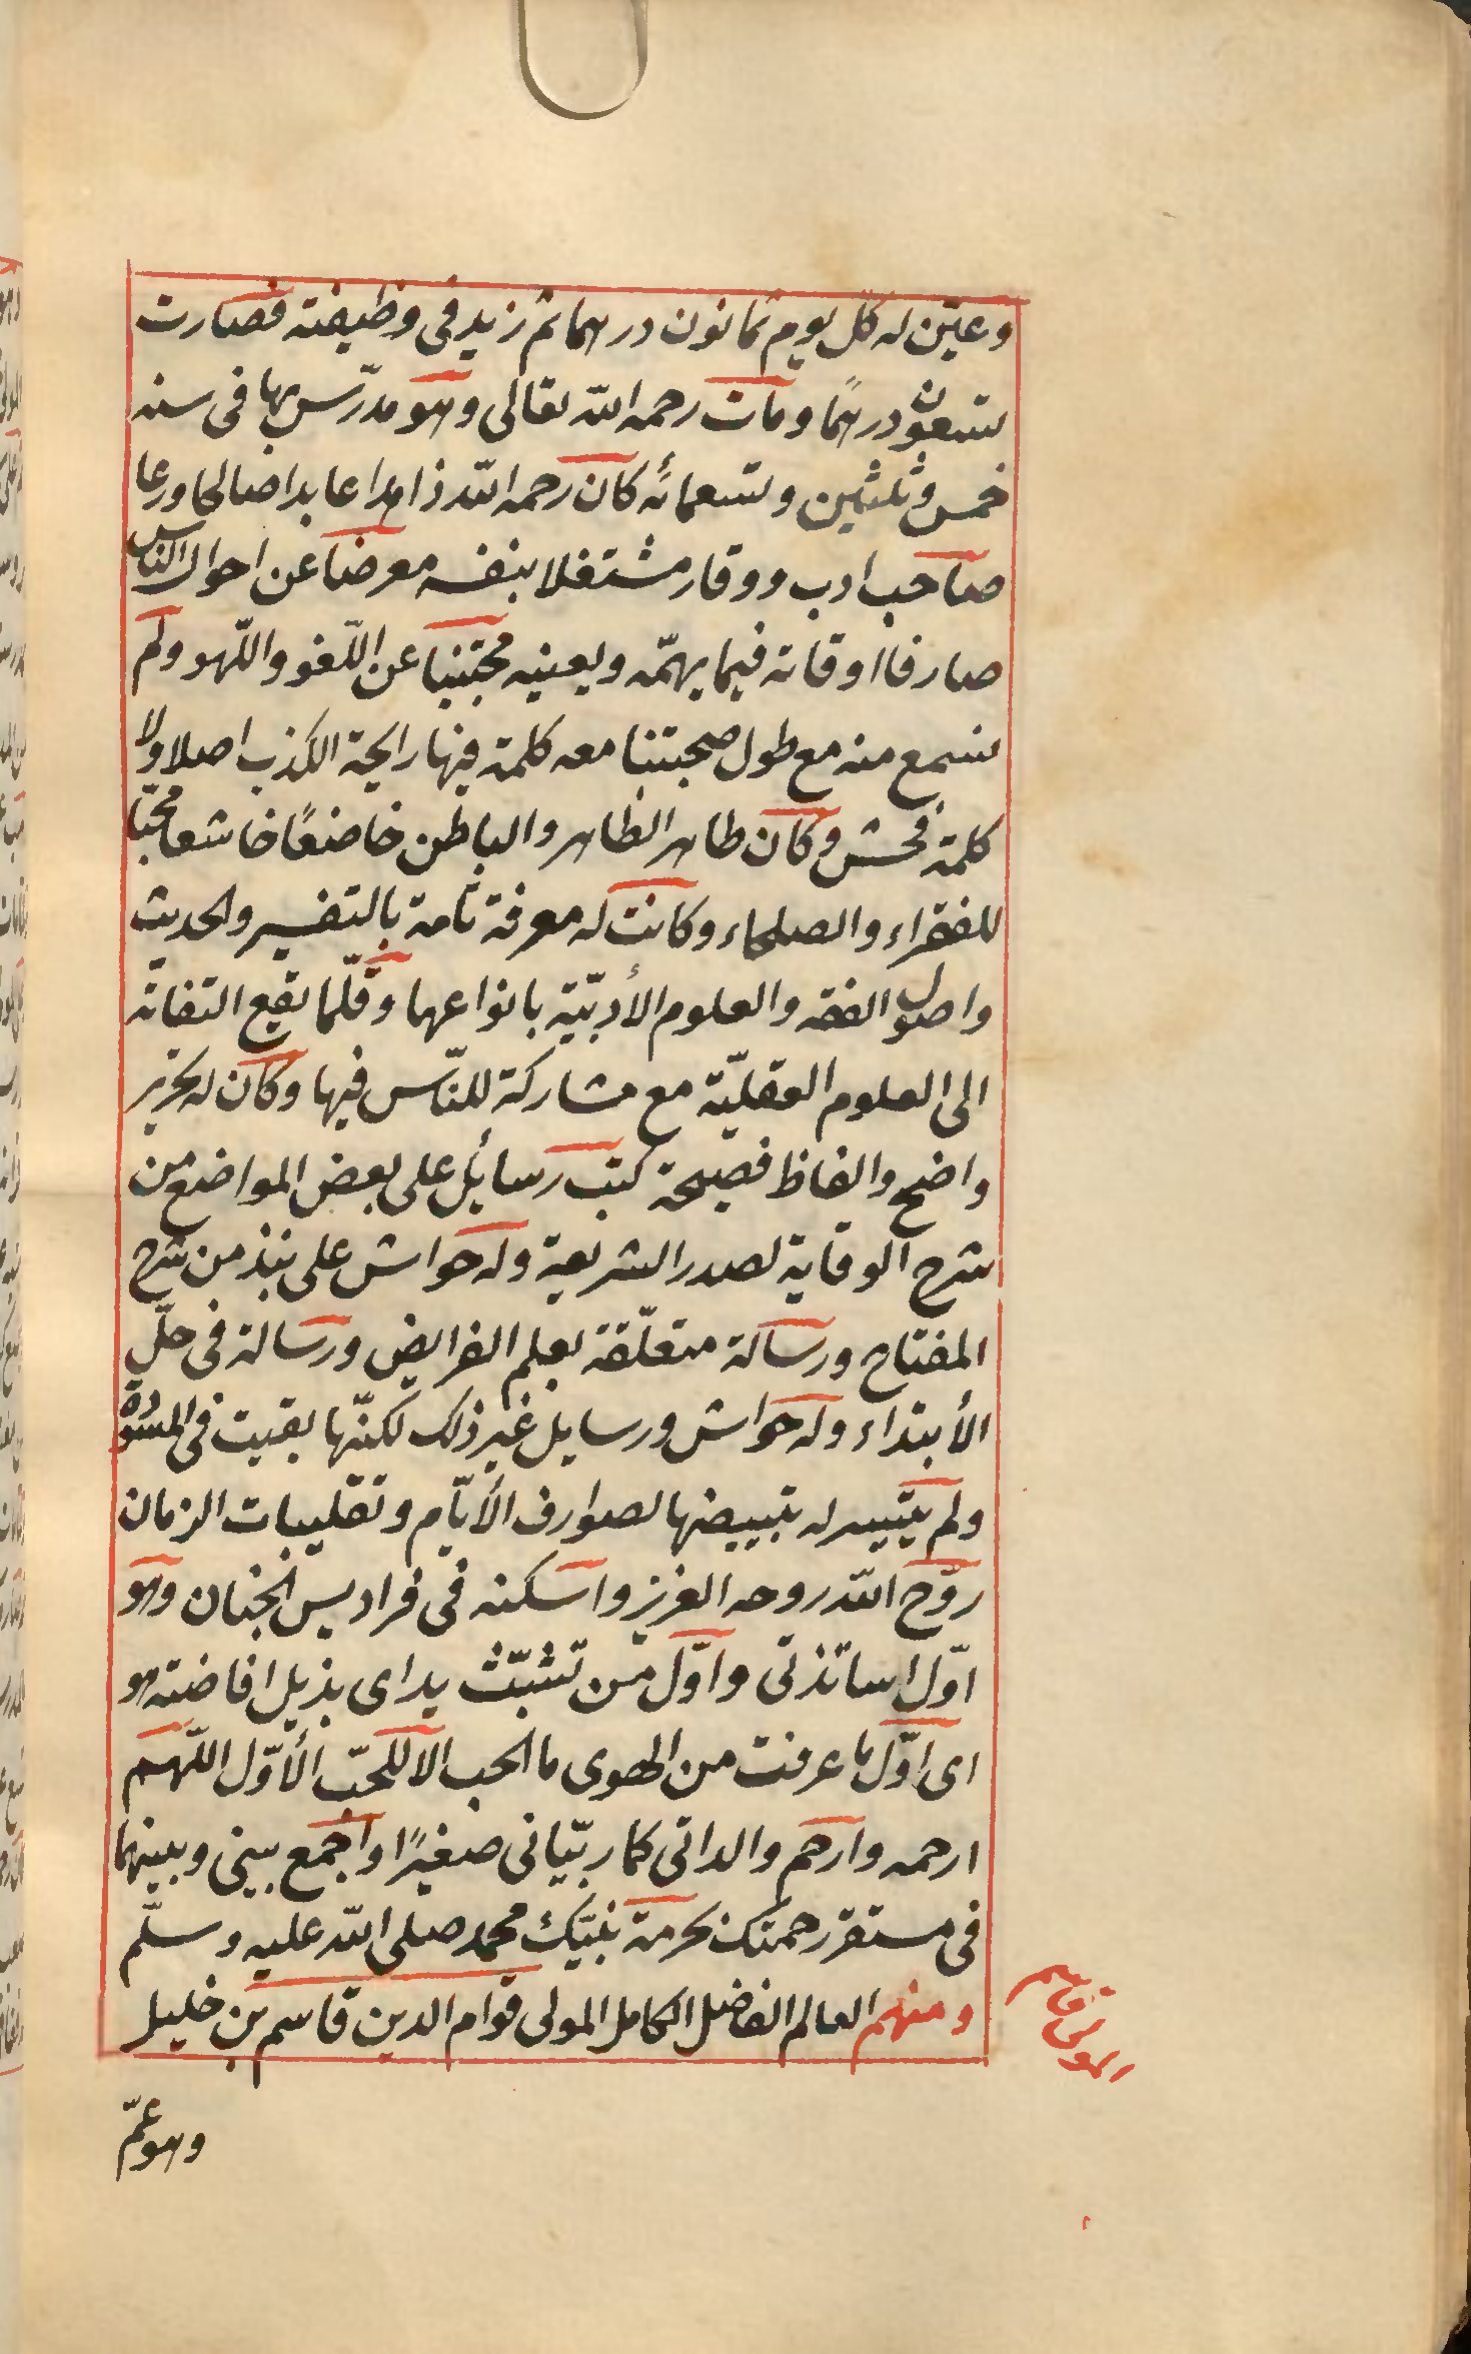 وعيّن له كلّ يوم ثمانون درهما ثم زيد في وظيفته فصارت
تسعون درهمًا ومات رحمه الله تعالى وهو مدرّس بها في سنه
خمس وثلثين وتسعمائه كان رحمه الله زاهدا عابدا صالحا ورعا
صاحب ادب ووقار مشتغلا بنفسه معرضا عن احوال الناس
صارفا اوقاته فيما يهمّه ويعنيه مجتنبا عن اللّغو واللّهو ولم
نسمع منه مع طول صحبتنا معه كلمة فيها رايحة الكذب اصلا ولا
كلمة فحش وكان طاهر الظاهر والباطن خاضعًا خاشعا محبّا
للفقراء والصلحاء وكانت له معرفة تامة بالتفسير والحديث
واصول الفقه والعلوم الأدبيّة بانواعها وقلّما يقع التفاته
الى العلوم العقليّة مع مشاركة للنّاس فيها وكان له تحرير
واضح والفاظ فصيحة كتب رسائل على بعض المواضع من
شرح الوقاية لصدر الشريعة وله حواش على نبذ من شرح
المفتاح ورسالة متعلّقة بعلم الفرايض ورسالة في حلّ
الأبتداء وله حواش ورسايل غير ذلك لكنّها بقيت في المسودة
ولم يتيسر له تبييضها لصوارف الأيّام وتقليبات الزمان
روّح الله روحه العزيز واسكنه في فراديس الجنان وهو
اوّل اساتذتي واوّل من تشبّث يداى بذيل افاضته هو
اى اوّل ما عرفت من الهوى ما الحب الا للحبّ الأوّل اللّهم
ارحمه وارحم والداتى كما ربّيانى صغيرًا واجمع بينى وبينهما
في مستقر رحمتك بحرمة نبيّك محمد صلى الله عليه وسلّم
ومنهم العالم الفاضل الكامل المولى قوام الدين قاسم بن خليل
المولى قاسم
وهو عمّ